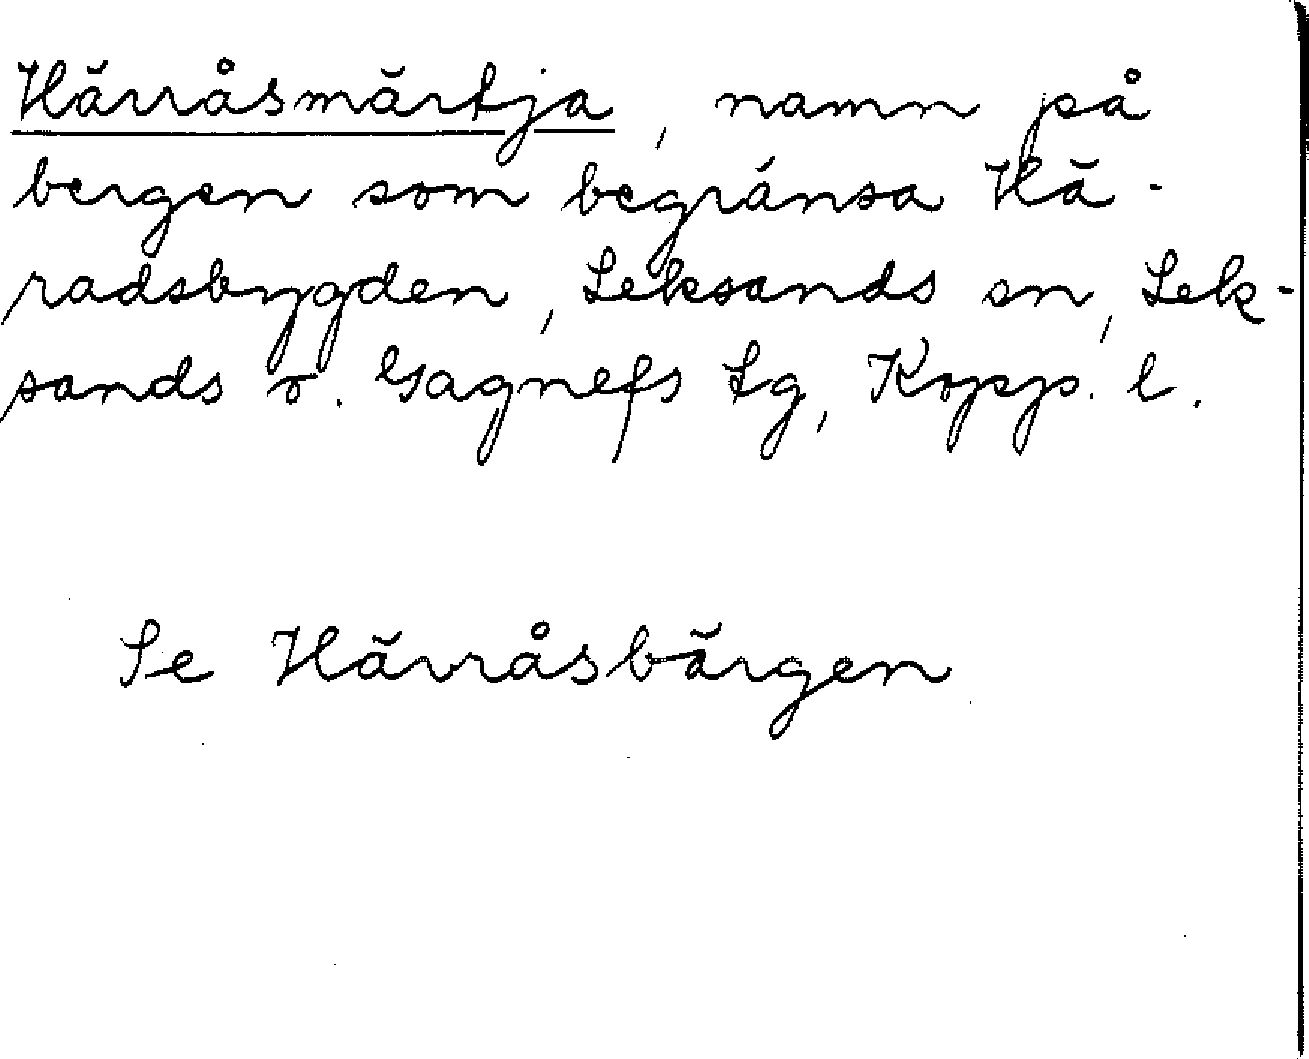 Härråsmärkja, namn på
bergen som begränsa Hä-
radsbygden, Leksands sn, Lek-
sands o. Gagnefs tg, Kopp. l.
Se Härråsbärgen